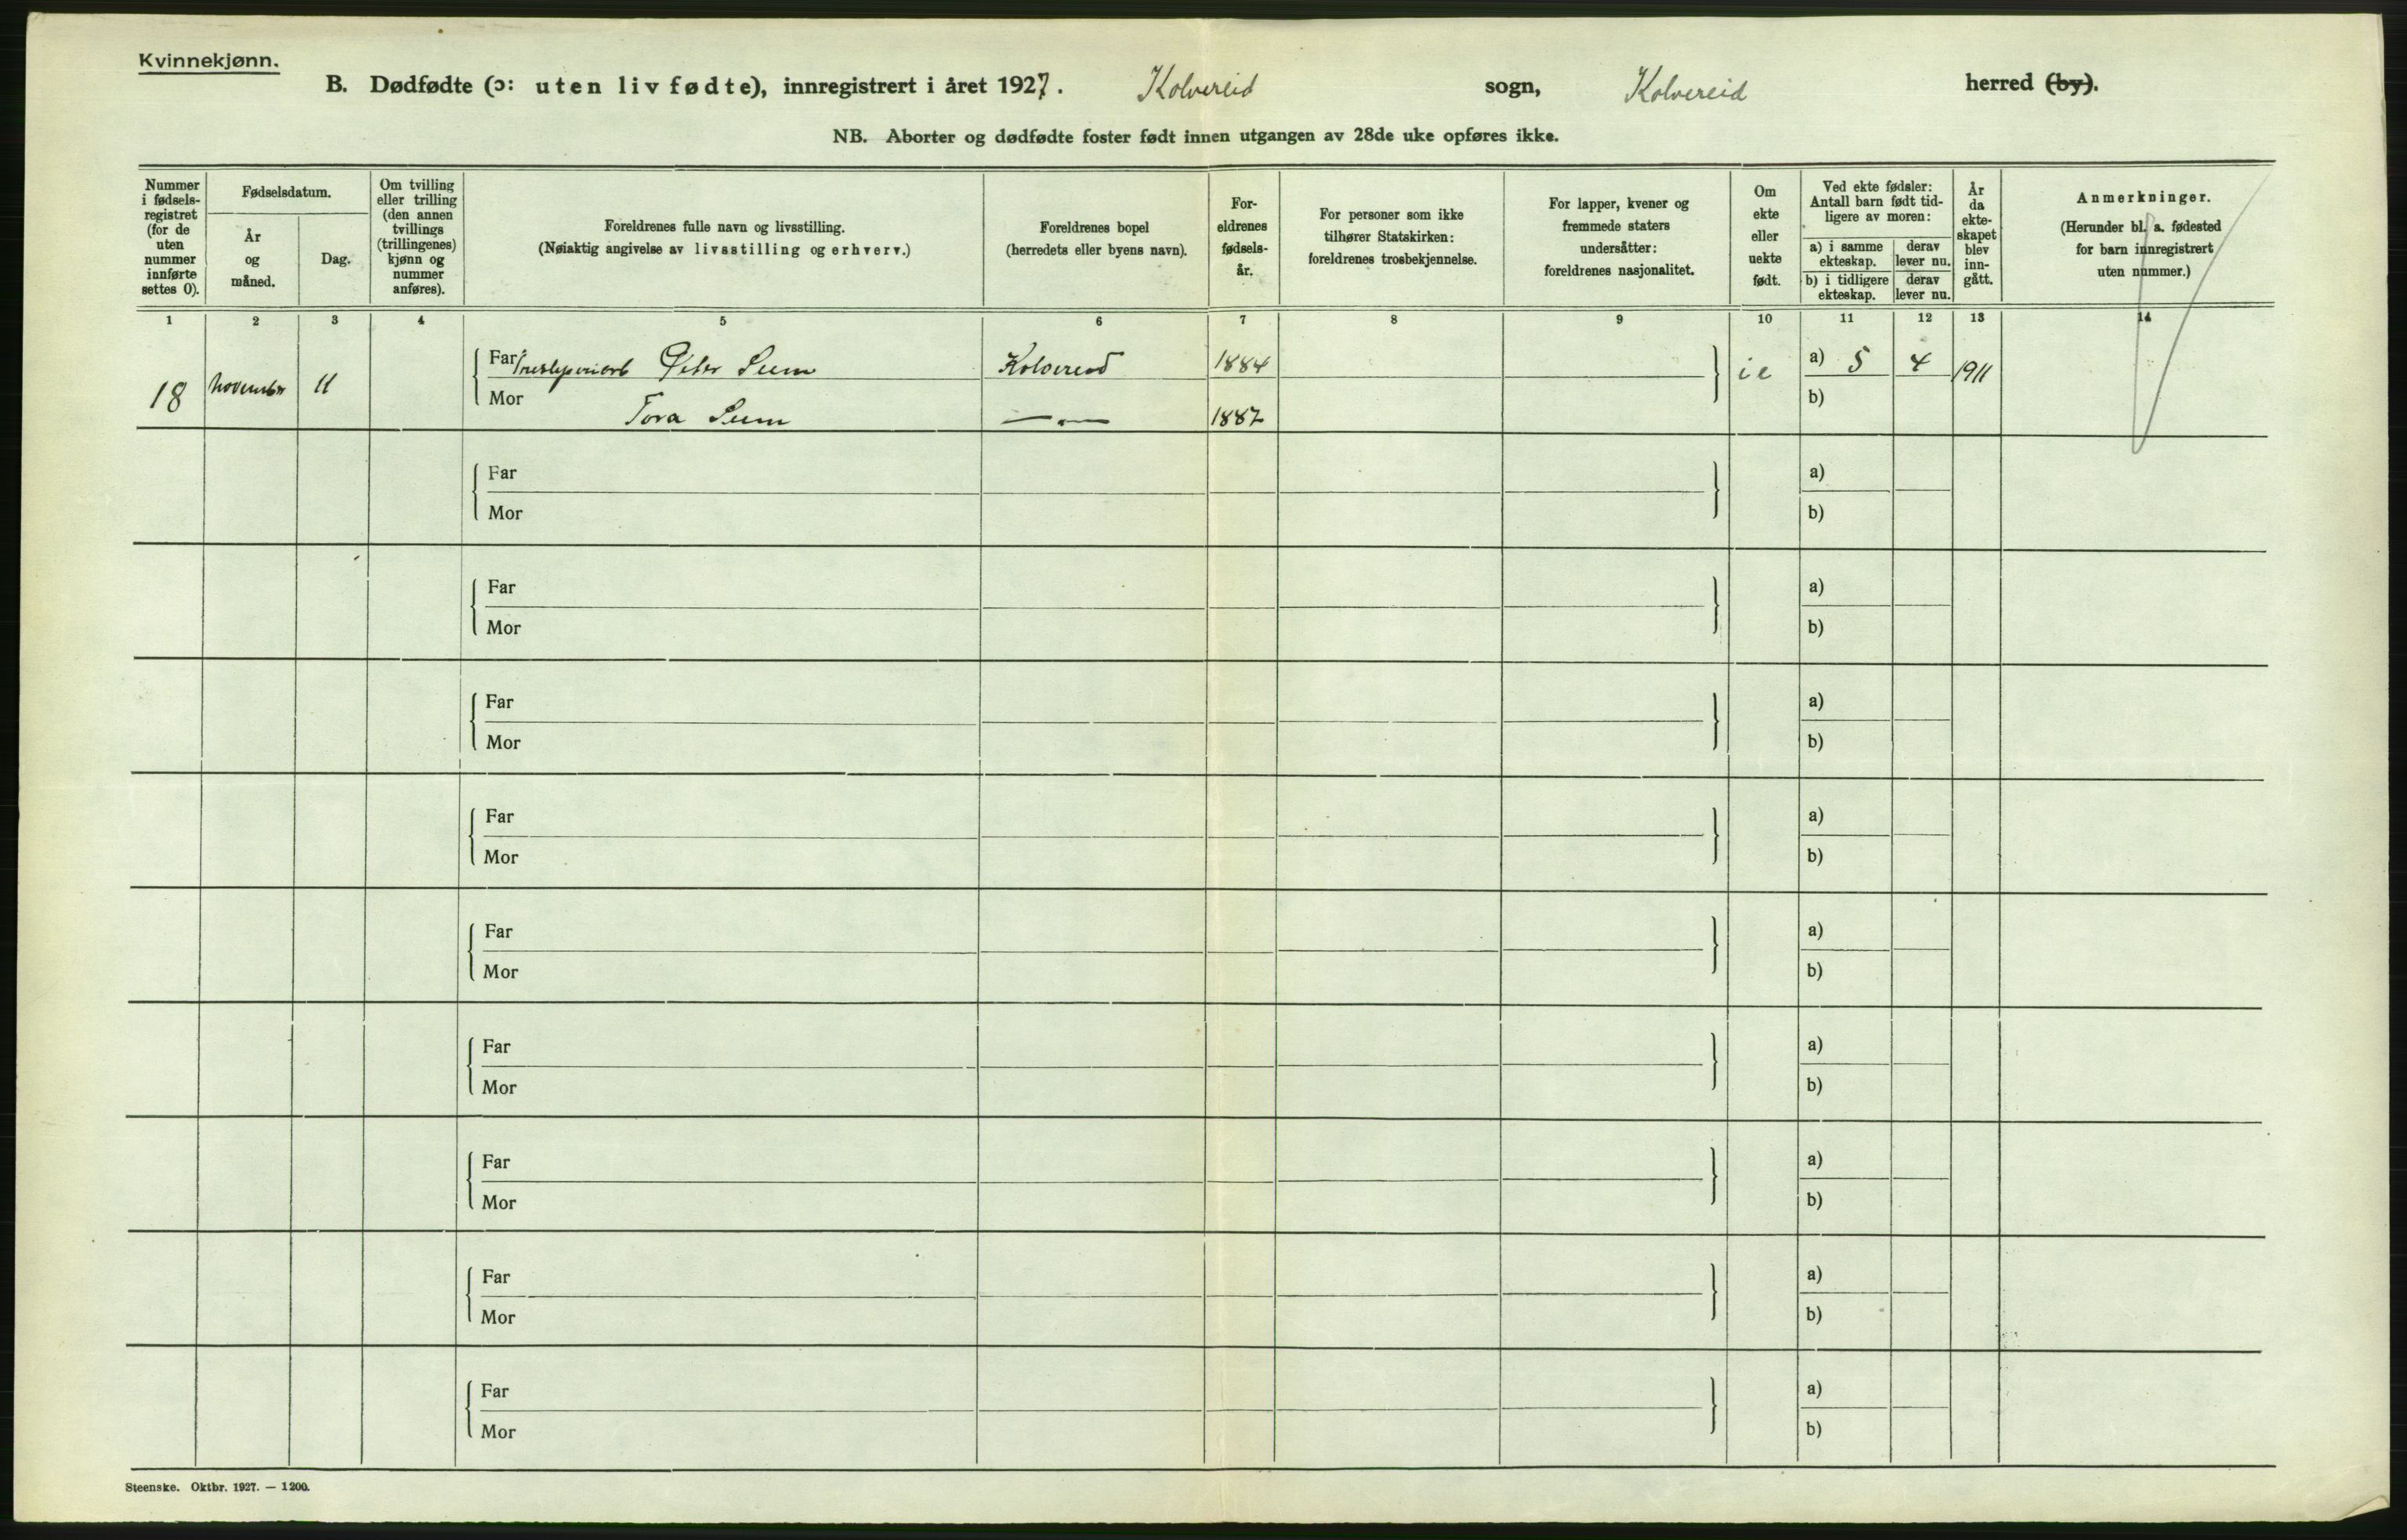 Kvinnekjønn.
B. Dødfødte (ɔ: uten liv fødte), innregistrert i året 1927. Kolvereid sogn, Kolvereid herred (by).
NB. Aborter og dødfødte foster født innen utgangen av 28de uke opføres ikke.
Nummer i fødsels-registret (for de uten nummer innførte settes 0).
Fødselsdatum.
År og måned.
Dag.
Om tvilling eller trilling (den annen tvillings (trillingenes) kjønn og nummer anføres).
Foreldrenes fulle navn og livsstilling.
(Nøiaktig angivelse av livsstilling og erhverv.)
Foreldrenes bopel
(herredets eller byens navn).
For-eldrenes fødsels-år.
For personer som ikke tilhører Statskirken: foreldrenes trosbekjennelse.
For lapper, kvener og fremmede staters undersåtter: foreldrenes nasjonalitet.
Om ekte eller uekte født.
Ved ekte fødsler: Antall barn født tid-ligere av moren:
a) i samme ekteskap.
derav lever nu.
b) i tidligere ekteskap.
derav lever nu.
År da ekte-skapet blev inn-gått.
Anmerkninger.
(Herunder bl. a. fødested for barn innregistrert uten nummer.)
1 2 3 4 5 6 7 8 9 10 11 12 13 14
18 november 11 Far Peter Sum Kolvereid 1884 i e a) 5 4 1911
Mor Tora Sum —„— 1887 b)
Far a)
Mor b)
Far a)
Mor b)
Far a)
Mor b)
Far a)
Mor b)
Far a)
Mor b)
Far a)
Mor b)
Far a)
Mor b)
Far a)
Mor b)
Far a)
Mor b)
Steenske. Oktbr. 1927. — 1200.